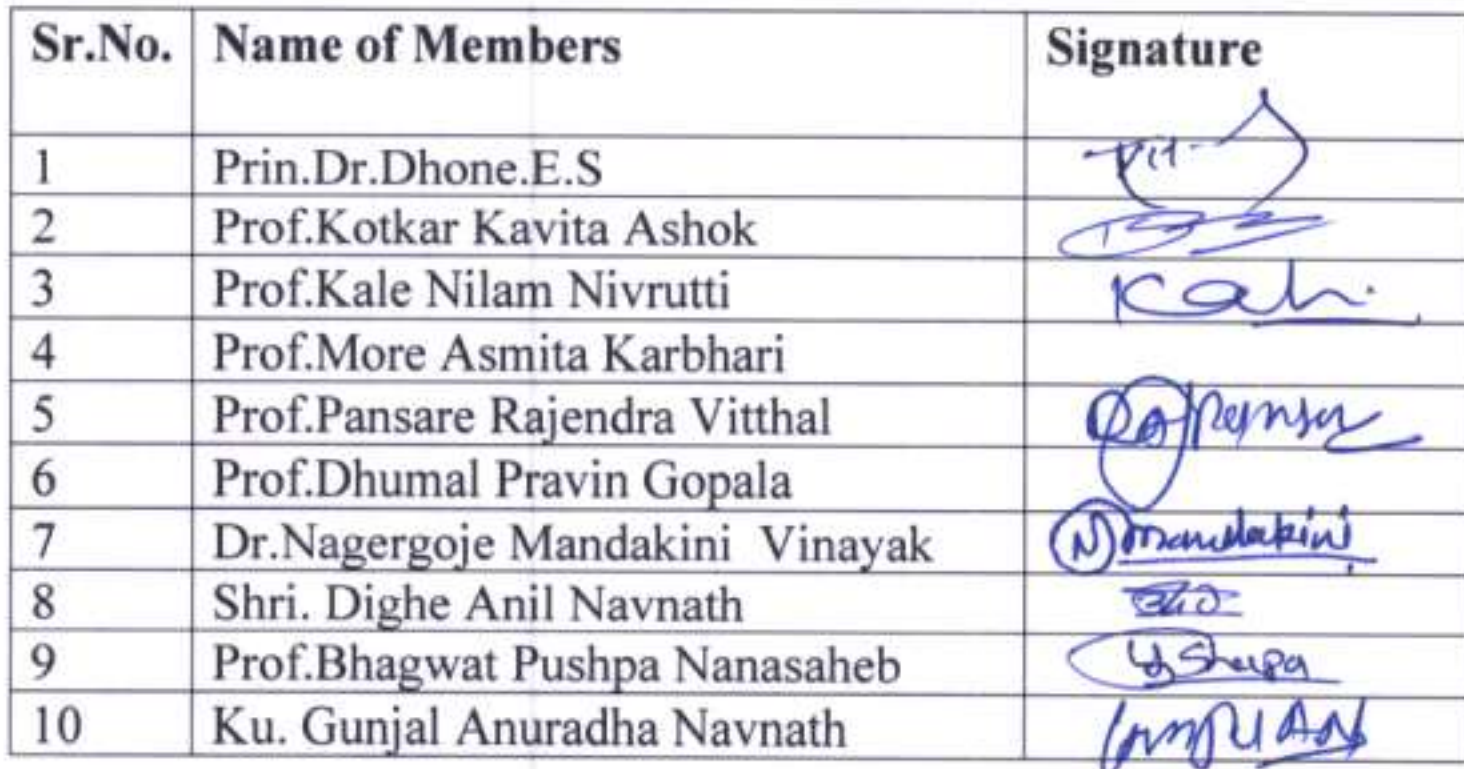 Sr.No. Name of Members Signature
1 Prin.Dr.Dhone.E.S
2 Prof.Kotkar Kavita Ashok
3 Prof.Kale Nilam Nivrutti
4 Prof.More Asmita Karbhari
5 Prof.Pansare Rajendra Vitthal
6 Prof.Dhumal Pravin Gopala
7 Dr.Nagergoje Mandakini Vinayak (N) mandakini
8 Shri. Dighe Anil Navnath
9 Prof.Bhagwat Pushpa Nanasaheb
10 Ku. Gunjal Anuradha Navnath